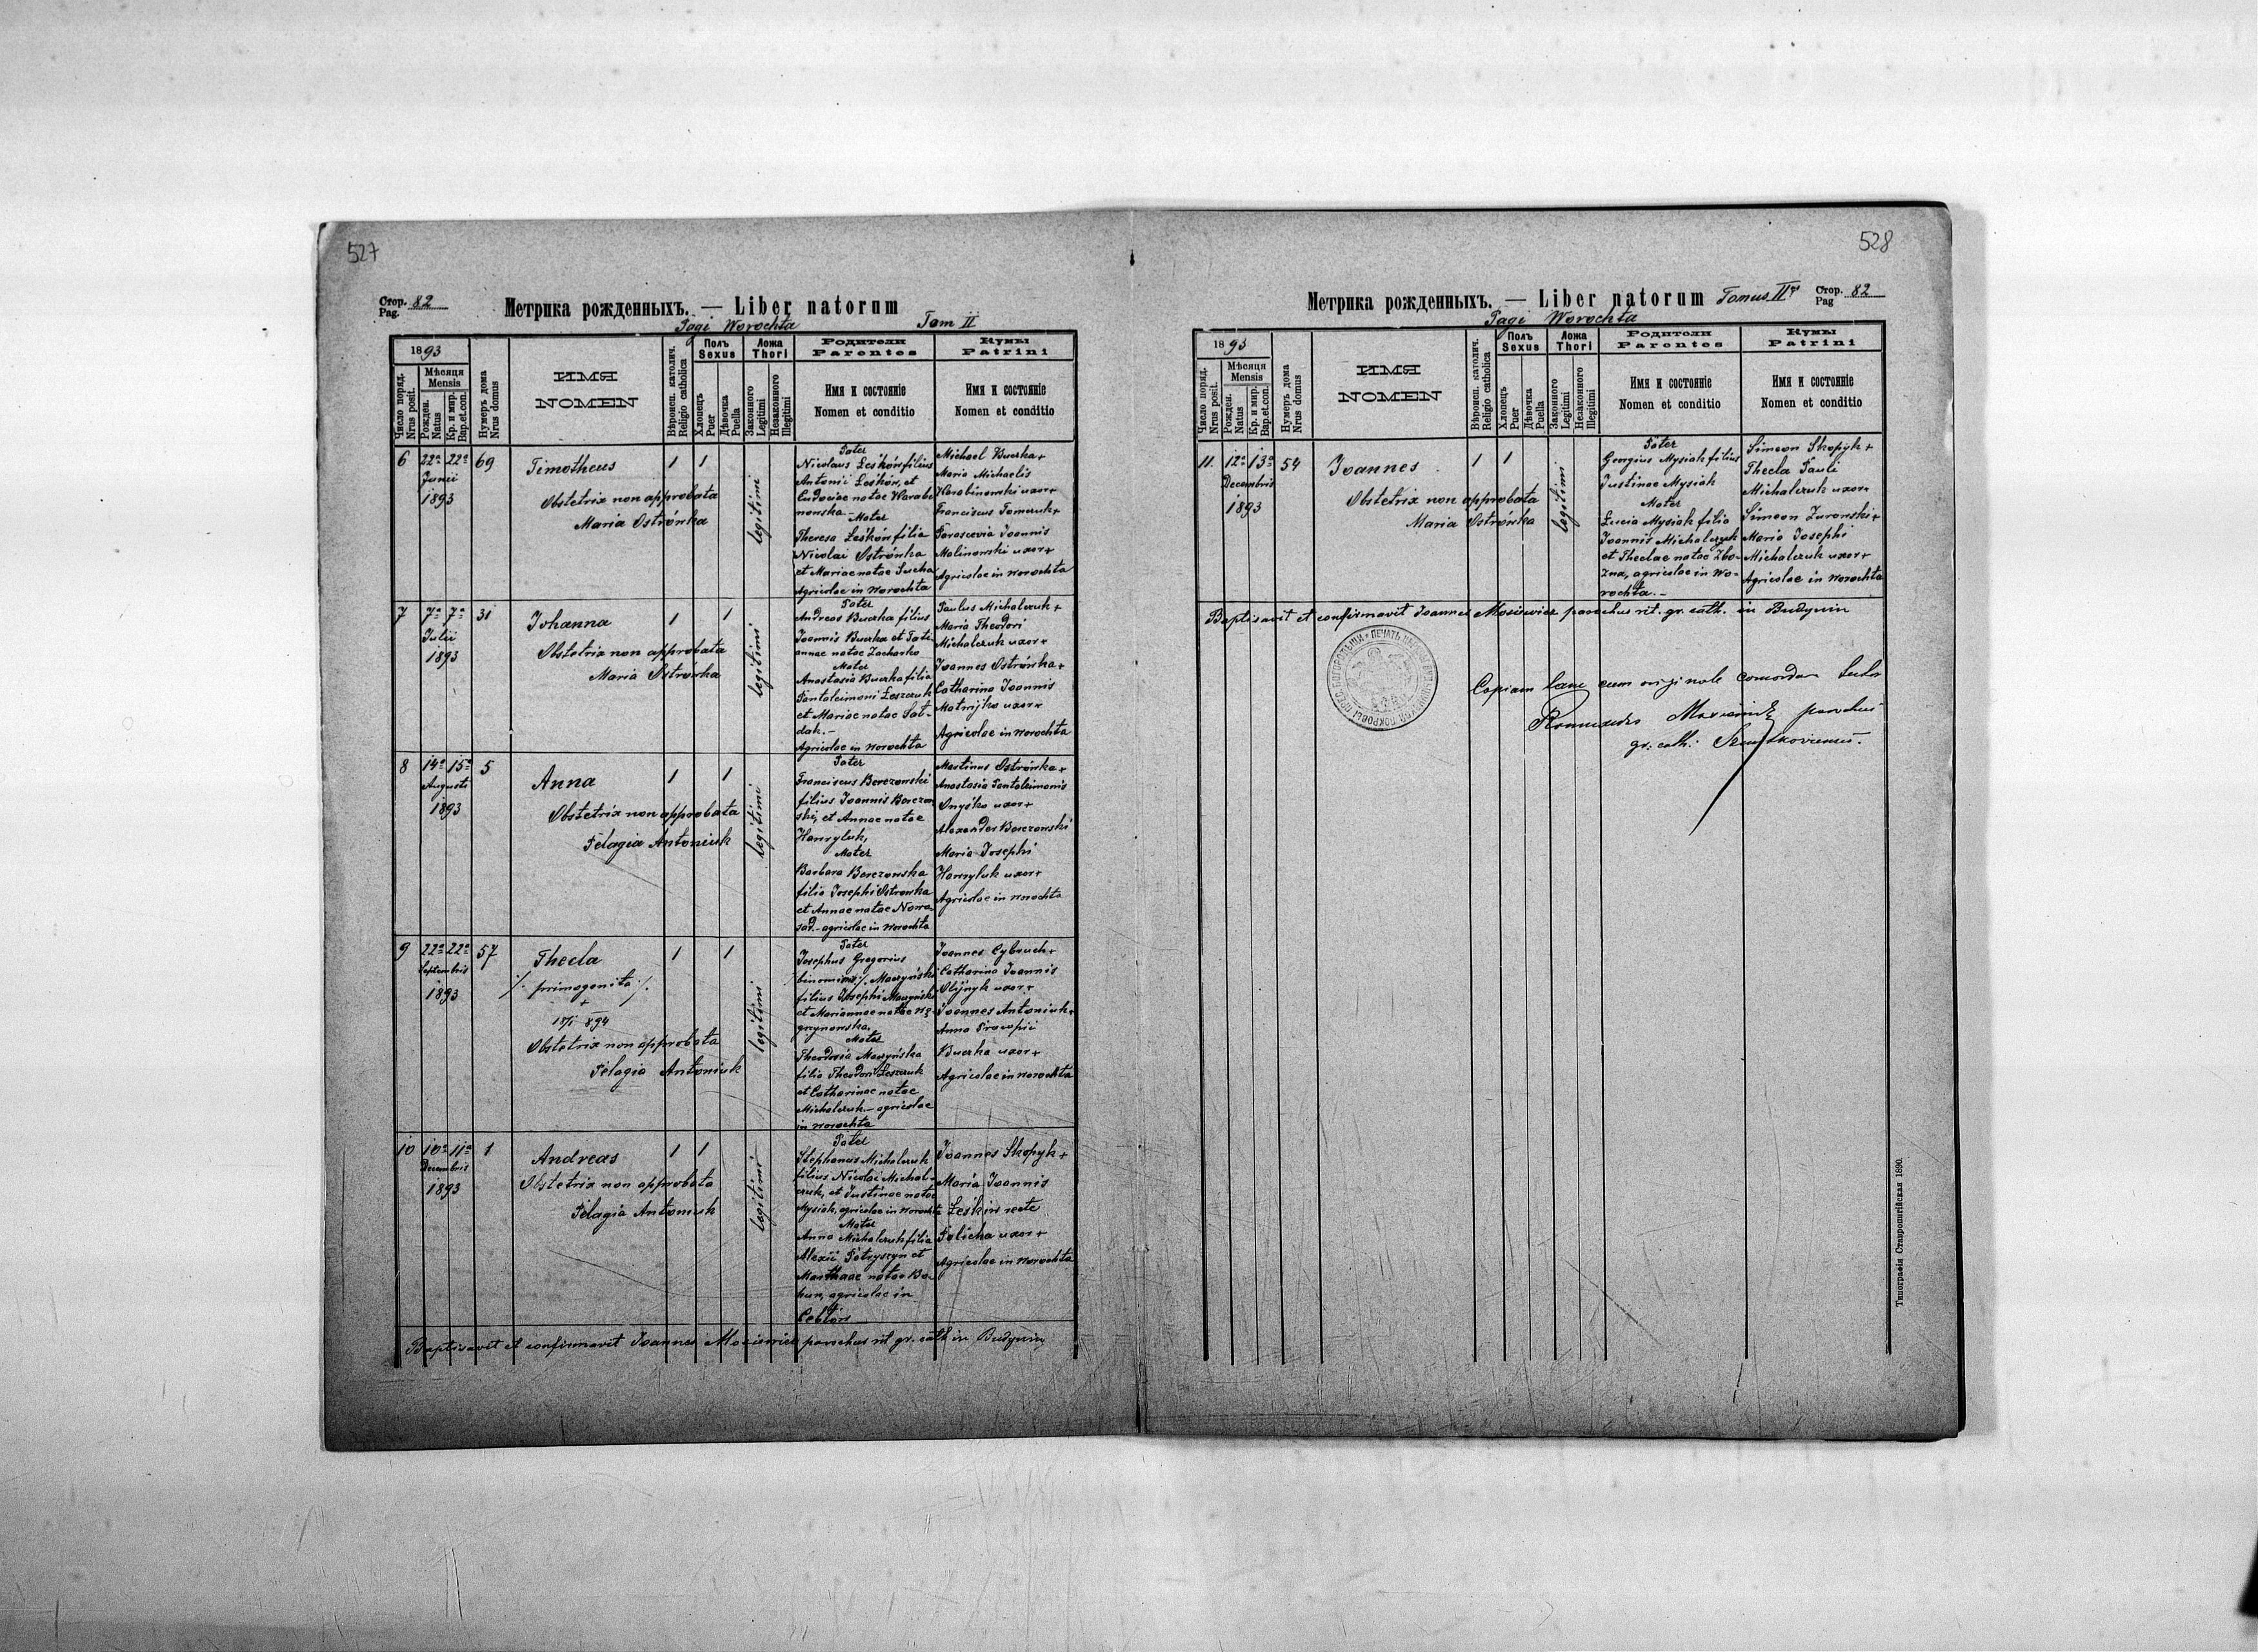 527
Стор. 82
Pag.
Метрика рожденныхъ. — Liber natorum
Pagi Worochta Tom II
1893
Число поряд.
Nrus posit.
Мѣсяця
Mensis
Рожден.
Natus
Кр. и мир.
Bap.et.con.
Нумеръ дома
Nrus domus
ИМЯ
NOMEN
Вѣроисп. католич.
Religio catholica
Полъ
Sexus
Хлопецъ
Puer
Дѣвочка
Puella
Ложа
Thori
Законного
Legitimi
Незаконного
Illegitimi
Родители
Parentes
Имя и состоянiе
Nomen et conditio
Кумы
Patrini
Имя и состоянiе
Nomen et conditio
6 22a 22a 69
Junii
1893
Timotheus
Obstetrix non approbata
Maria Ostrówka
1 1
legitimi
Pater
Nicolaus Leskón filius
Antonii Leskón, et
Eudociae natae Warabi-
nowska - Mater
Theresa Leskón filia
Nicolai Ostrówka
et Mariae natae Sucha
Agricolae in Worochta
Michael Buczka +
Maria Michaelis
Warabinowski uxor +
Franciscus Tomczuk +
Parascevia Joannis
Malinowski uxor +
Agricolae in Worochta
7 7a 7a 31
Julii
1893
Johanna
Obstetrix non approbata
Maria Ostrówka
1 1
legitimi
Pater
Andreas Buczka filius
Joannis Buczka et Tati-
annae natae Zacharko
Mater
Anastasia Buczka filia
Pantaleimoni Leszczuk
et Mariae natae Sat-
dak. -
Agricolae in Worochta
Paulus Michalczuk +
Maria Theodori
Michalczuk uxor +
Joannes Ostrówka +
Catharina Joannis
Matwijko uxor +
Agricolae in Worochta
8 14a 15a 5
Augusti
1893
Anna
Obstetrix non approbata
Pelagia Antoniuk
1 1
legitimi
Pater
Franciscus Berezowski
filius Joannis Berezow-
ski, et Annae natae
Hawryluk,
Mater
Barbara Berezowska
filia Josephi Ostrowka
et Annae natae Nowo-
sad. - agricolae in Worochta
Martinus Ostrówka +
Anastasia Pantaleimonis
Onyśko uxor +
Alexander Berezowski
Maria Josephi
Hawryluk uxor +
Agricolae in Worochta
9 22a 22a 57
Septembris
1893
Thecla
/. primogenita ./
+
18/1 894
Obstetrix non approbata
Pelagia Antoniuk
1 1
legitimi
Pater
Josephus Gregorius
/binomius/. Maczyński
filius Josephi Maczyński
et Mariannae natae Wę-
grzynowska.
Mater
Theodosia Maczyńska
filia Theodori Leszczuk
et Catharinae natae
Michalczuk - agricolae
in Worochta
Joannes Cybruch +
Catharina Joannis
Olijnyk uxor +
Joannes Antoniuk +
Anna Procopii
Buczka uxor +
Agricolae in Worochta
10 10a 11a 1
Decembris
1893
Andreas
Obstetrix non approbata
Pelagia Antoniuk
1 1
legitimi
Pater
Stephanus Michalczuk
filius Nicolai Michal-
czuk, et Justinae natae
Mysiak, agricolae in Worochta
Mater
Anna Michalczuk filia
Alexii Petryszyn et
Marthae natae Bo-
hun, agricolae in
Joannes Skopyk +
Maria Joannis
Leskiw recte
Palicha uxor +
Agricolae in Worochta
Baptisavit et confirmavit Joannes Mosiewicz parochus rit. gr. cath. in Budynin
528
Метрика рожденныхъ. — Liber natorum Tomus II
Стор. 82
Pag
Pagi Worochta
1893
Число поряд.
Nrus posit.
Мѣсяця
Mensis
Рожден.
Natus
Кр. и мир.
Bap.et.con.
Нумеръ дома
Nrus domus
ИМЯ
NOMEN
Вѣроисп. католич.
Religio catholica
Полъ
Sexus
Хлопецъ
Puer
Дѣвочка
Puella
Ложа
Thori
Законного
Legitimi
Незаконного
Illegitimi
Родители
Parentes
Имя и состоянiе
Nomen et conditio
Кумы
Patrini
Имя и состоянiе
Nomen et conditio
11. 12a 13a 54
Decembris
1893
Joannes
Obstetrix non approbata
Maria Ostrówka
1 1
legitimi
Pater
Georgius Mysiak filius
Justinae Mysiak
Mater
Lucia Mysiak filia
Joannis Michalczuk
et Theclae natae
agricolae in Wo-
rochta. -
Simeon Skopyk +
Thecla Pauli
Michalczuk uxor
Simeon Zurowski +
Maria Josephi
Michalczuk uxor +
Agricolae in Worochta
Baptisavit et confirmavit Joannes Mosiewicz parochus rit. gr. cath. in Budynin
Copiam hanc cum originale
parochus
gr. cath.
Типографiя Ставропигiйская 1890.